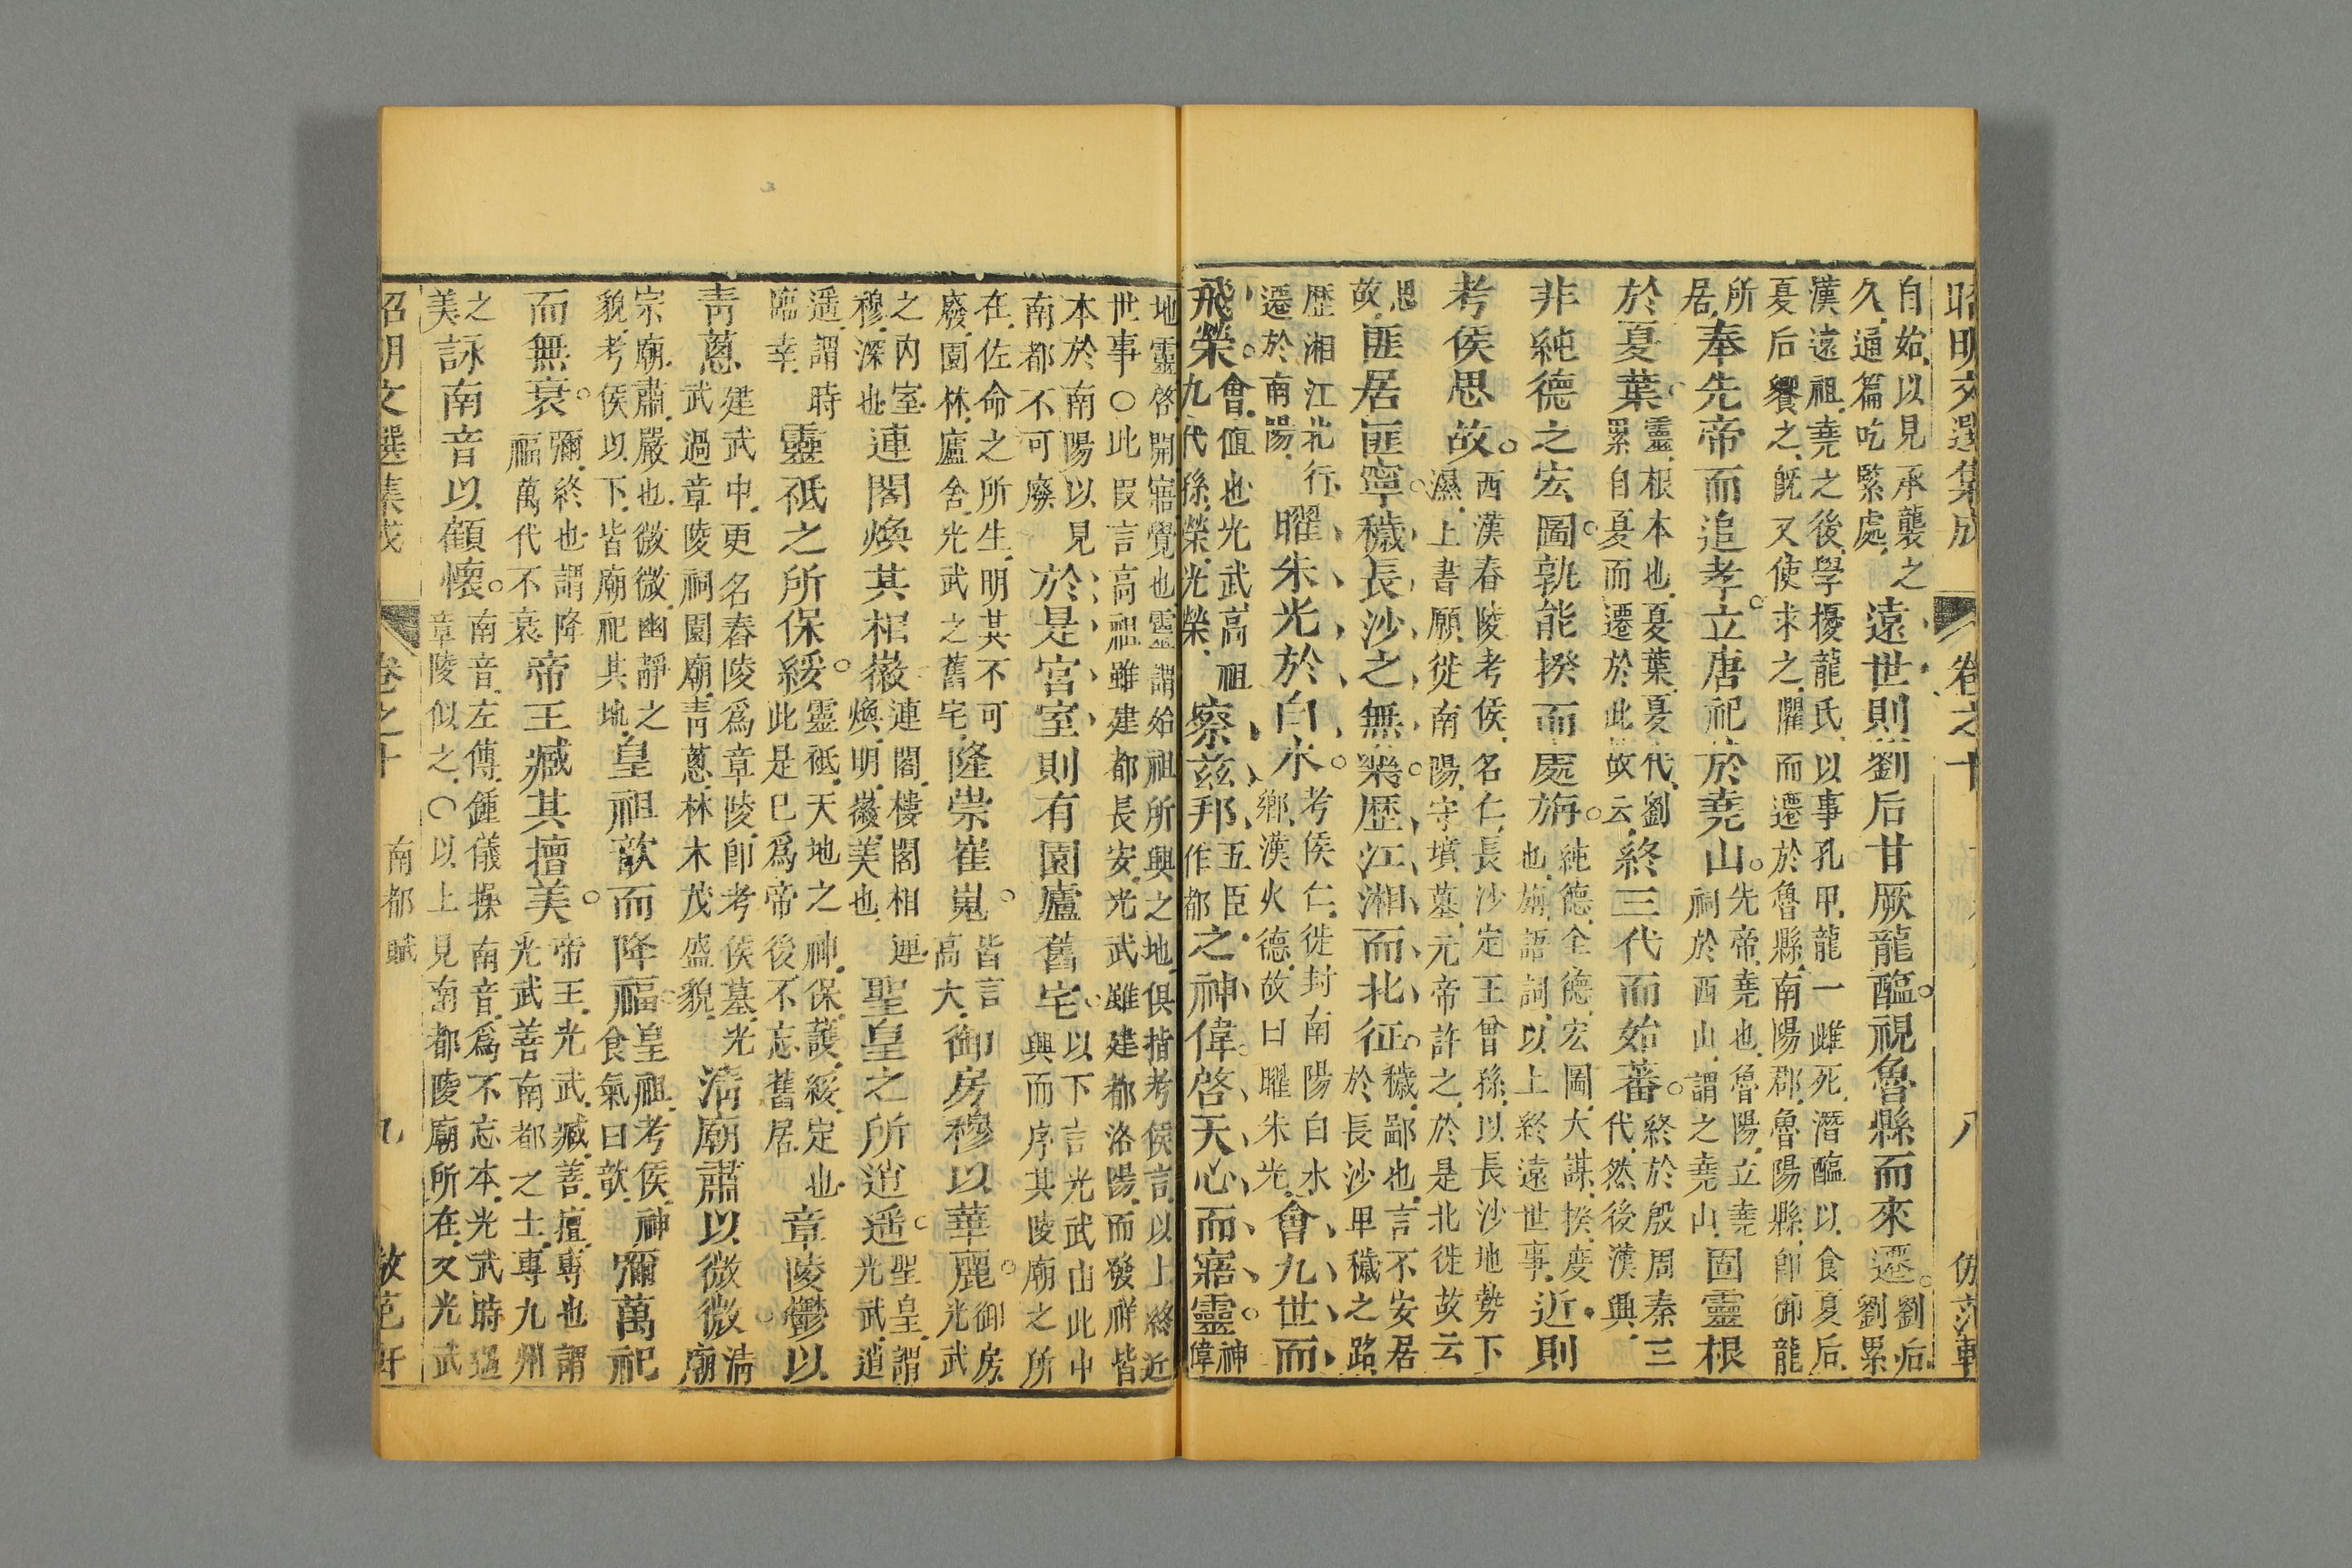 昭明文選集成 卷之十 八 仿范軒
自始以見承襲之
久通篇吃緊處
遠世則劉后甘厥龍醢。視魯縣而來遷。
劉后
劉累
漢遠祖堯之後學擾龍氏以事孔甲龍一雌死潛醢以食夏后
夏后饗之旣又使求之懼而遷於魯縣南陽郡魯陽縣卽御龍
所
居
奉先帝而追孝。立唐祀於堯山。
先帝堯也魯陽立堯
祠於西山謂之堯山
固靈根
於夏葉。
靈根本也夏葉夏代劉
累自夏而遷於此故云
終三代而始蕃。
終於殷周秦三
代然後漢興
非純德之宏圖。孰能揆而處旃。
純德全德宏圖大謀揆度
也旃語詞以上終遠世事
近則
考侯思故。
西漢舂陵考侯名仁長沙定王曾孫以長沙地勢下
濕上書願徙南陽守墳墓元帝許之於是北徙故云
思
故
匪居匪寧。穢長沙之無樂。歷江湘而北征。
穢鄙也言不安居
於長沙卑穢之路
歷湘江北行
遷於南陽
曜朱光於白水。
考侯仁徙封南陽白水
鄉漢火德故曰曜朱光
會九世而
飛榮。
會值也光武高祖
九代孫榮光榮
察茲邦
五臣
作都
之神偉。啓天心而寤靈。
神
偉
地靈啓開寤覺也靈謂始祖所興之地俱指考侯言以上終近
世事○此叚言高祖雖建都長安光武雖建都洛陽而發祥皆
本於南陽以見
南都不可廢
於是宮室則有園廬舊宅。
以下言光武由此中
興而序其陵廟之所
在佐命之所生明其不可
廢園林廬舍光武之舊宅
隆崇崔嵬。
皆言
高大
御房穆以華麗。
御房
光武
之内室
穆深也
連閣煥其相徽。
連閣樓閣相連
煥明徽美也
聖皇之所逍遥。
聖皇謂
光武逍
遥謂時
臨幸
靈祗之所保綏。
靈祗天地之神保護綏定也
此是巳爲帝後不忘舊居
章陵鬱以
靑葱
建武中更名舂陵爲章陵卽考侯墓光
武過章陵祠園廟靑葱林木茂盛貌
淸廟肅以微微。
淸
廟
宗廟肅嚴也微微幽靜之
貌考侯以下皆廟祀其地
皇祖歆而降福。
皇祖考侯神
食氣曰歆
彌萬祀
而無衰。
彌終也謂降
福萬代不衰
帝王臧其擅美。
帝王光武臧善擅專也謂
光武善南都之士專九州
之
美
詠南音以顧懷。
南音左傳鍾儀操南音爲不忘本光武時過
章陵似之○以上見南都陵廟所在又光武
昭明文選集成 卷之十 南都賦 九 倣范軒